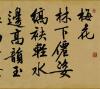 梅花
林下僊姿
縞袂輕水
邊高韻玉